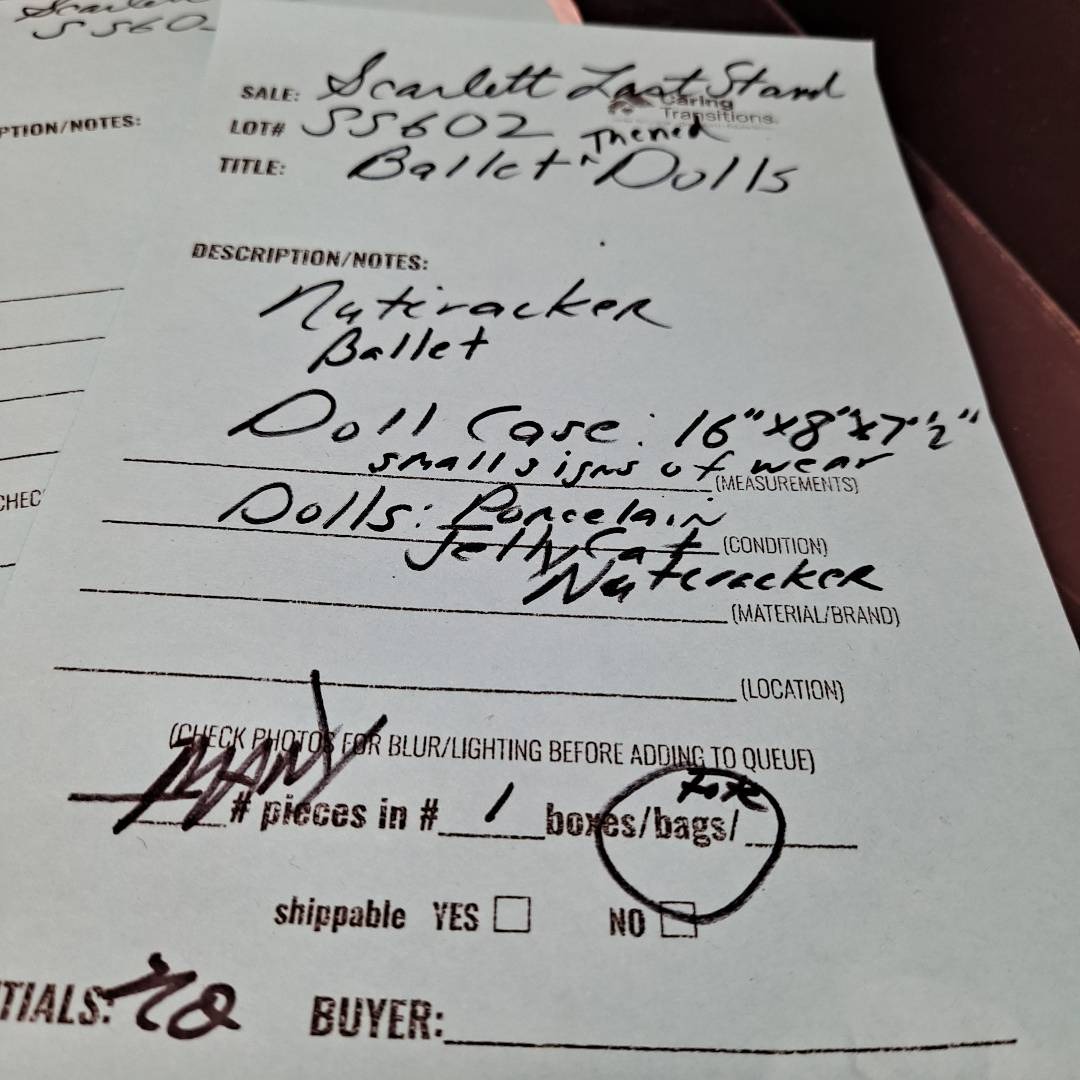 Scarlett
SS602
PTION/NOTES:
CHEC
SALE: Scarlett Last Stand
Caring
Transitions
LOT# SS602
Themed
TITLE: Ballet ^ Dolls
DESCRIPTION/NOTES:
Nutcracker
Ballet
Doll Case: 16" x 8" x 7 1/2"
small signs of wear
(MEASUREMENTS)
Dolls: Porcelain
(CONDITION)
Jelly Cat
Nutcracker
(MATERIAL/BRAND)
(LOCATION)
(CHECK PHOTOS FOR BLUR/LIGHTING BEFORE ADDING TO QUEUE)
MANY # pieces in # 1 boxes/bags/ tote
shippable YES NO
TIALS: BUYER: